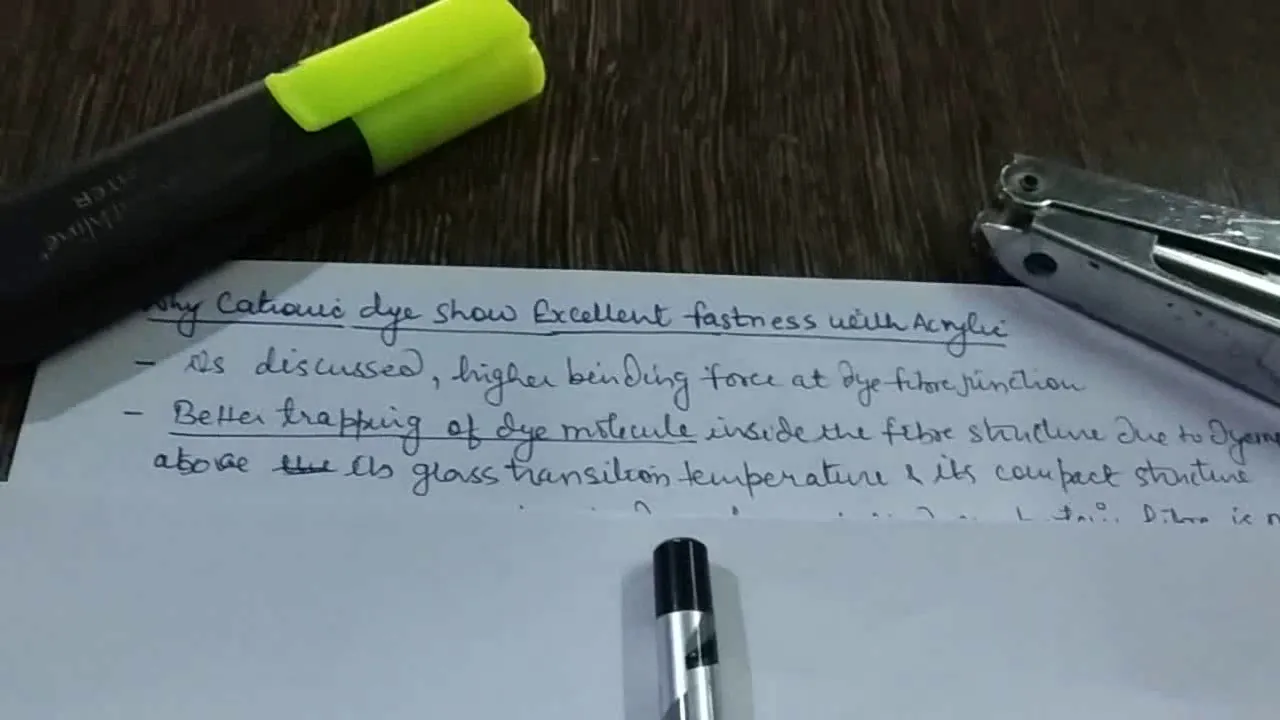 Why Cationic dye show Excellent fastness with Acrylic
- As discussed, higher binding force at dye fibre junction
- Better trapping of dye molecule inside the fibre structure due to
above its glass transition temperature & its compact structure
fibre is